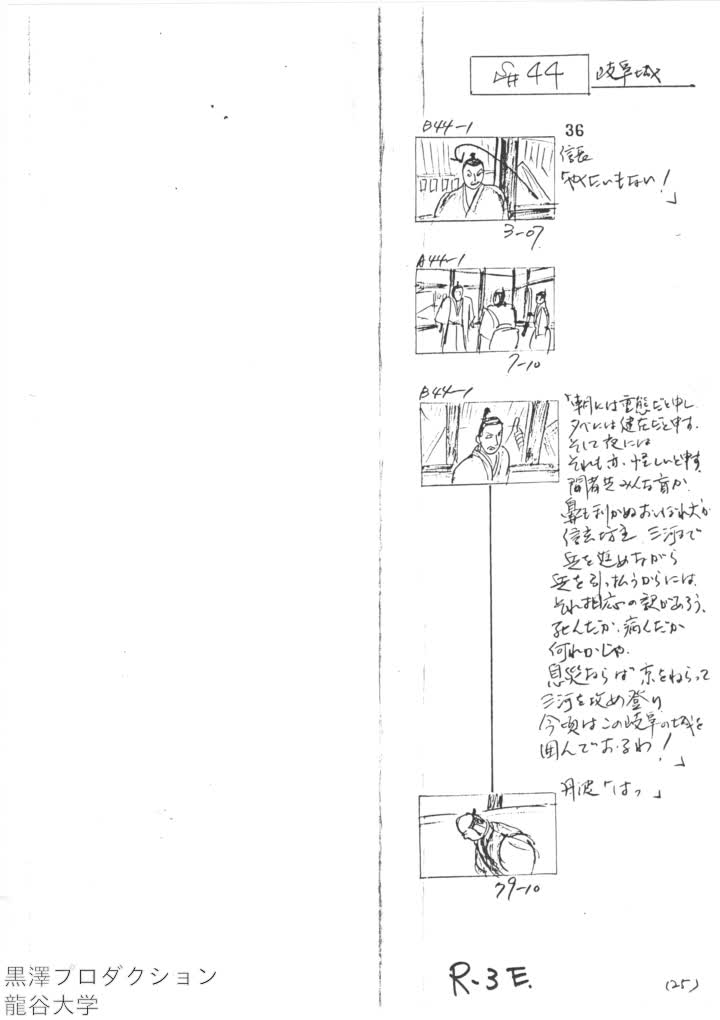 S# 44 岐阜城
B44-1
36
信長
「やくたいもない！」
3-07
A44-1
7-10
B44-1
「朝には重態だと申し
夕べには健在だと申す、
そして夜には
それも亦、怪しいと申す
間者共みんな盲か、
鼻も利かぬおいぼれ犬か
信玄坊主、三河まで
兵を進めながら
兵を引っ払うからには、
それ相応の訳があろう、
死んだか、病んだか
何れかじゃ、
息災ならば 京をねらって
三河を攻め登り
今頃はこの岐阜の城を
囲んでおるわ！」
丹波「はっ」
39-10
R-3E.
(25)
黒澤プロダクション
龍谷大学